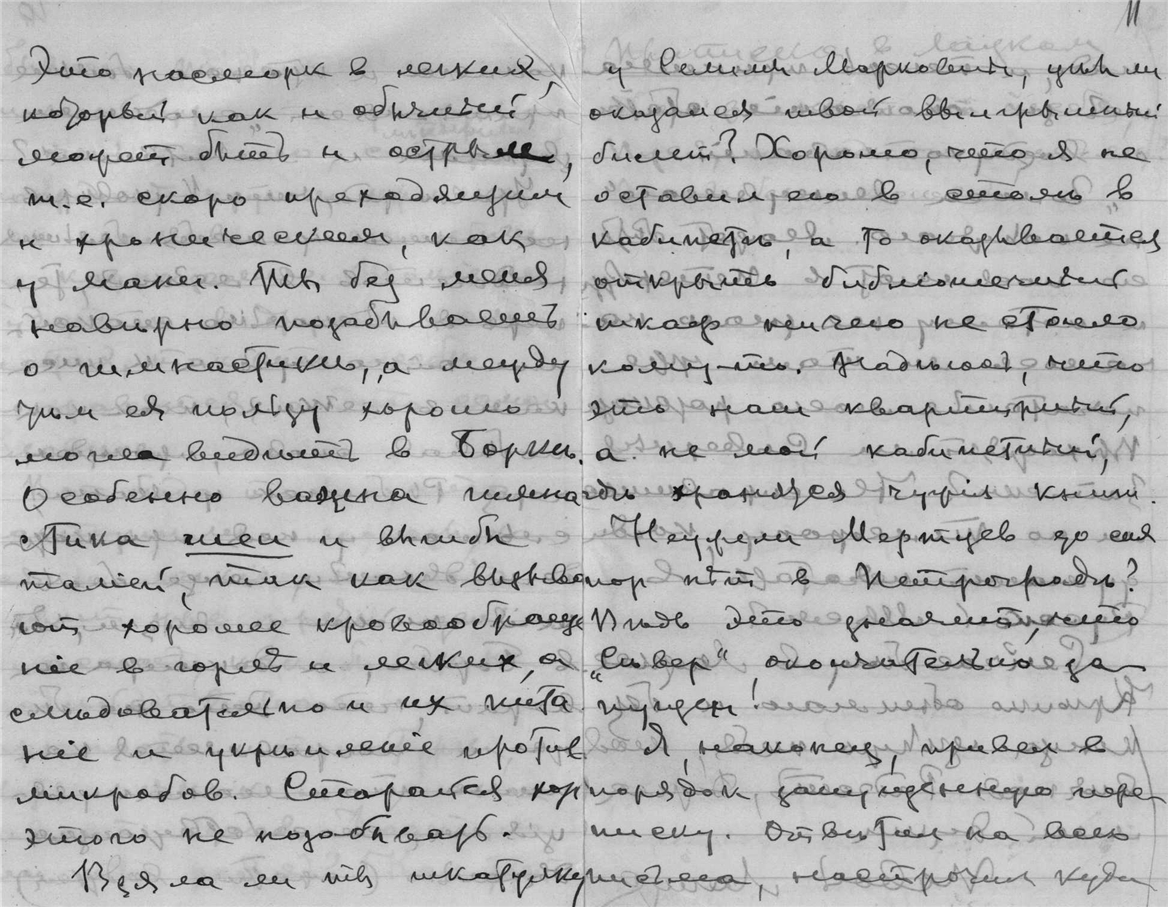 Это насморк в легких,
который как и обычный
может быть и острым,
т.е. скоро преходящим
и хроническим, как
у мамы. Ты без меня
наверно позабываешь
о гимнастикѣ, а между
тѣм ея пользу хорошо
могла видѣть в Борки.
Особенно важна гимна
стика шеи и
талией, так как вызыва
ют хорошее кровообраще
ніе в горлѣ и легких, а
слѣдовательно и их пита
ніе и укрѣпленіе против
микробов. Старайся
этого не позабывать.
Взяла ли ты шкатулку
11
у Марковны, цѣл ли
оказался твой выигрышный
билет? Хорошо, что я не
оставил его в столѣ в
кабинетѣ, а то оказывается
открыть библіотечный
шкаф ничего не стоило
кому-то. Надѣюсь, что
это наш квартирный,
а не мой кабинетный,
гдѣ хранятся чужія книги.
Неужели Мертцев до сих
пор нѣт в Петроградѣ?
Вѣдь это значит, что
„Сивер“ окончательно за
пущен!
Я, наконец, привел в
порядок запущенную пере-
писку. Отвѣтил на всѣ
письма, настрочил куда